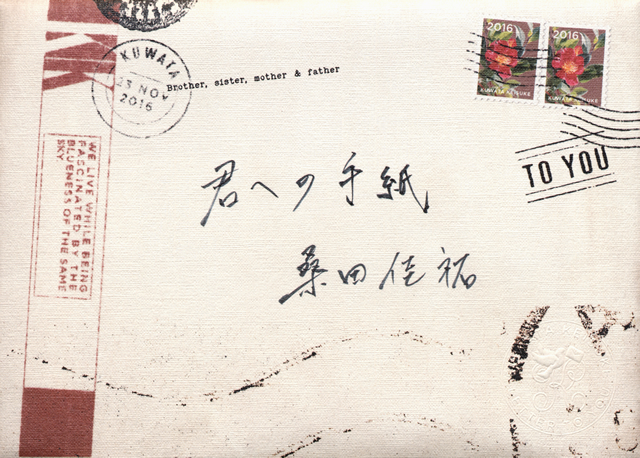 KUWATA
23 NOV
2016
Brother, sister, mother & father
2016
2016
KUWATA KEISUKE
KUWATA KEISUKE
TO YOU
君への手紙
桑田佳祐
WE LIVE WHILE BEING
FASCINATED BY THE
BLUENESS OF THE SAME
SKY